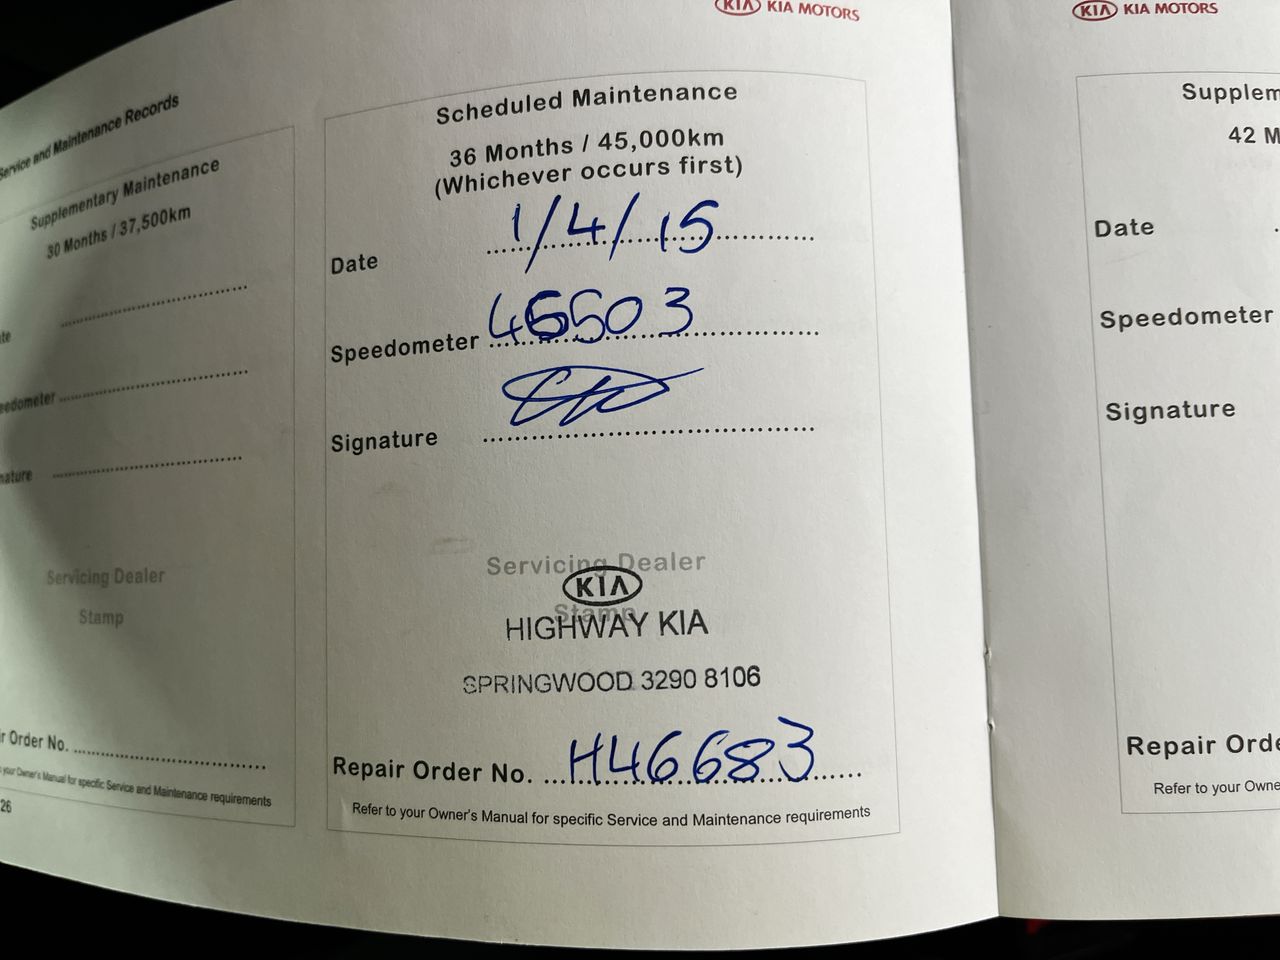 Service and Maintenance Records
Supplementary Maintenance
30 Months / 37,500km
Servicing Dealer
Stamp
Order No.
your Owner's Manual for specific Service and Maintenance requirements
26
KIA KIA MOTORS
Scheduled Maintenance
36 Months / 45,000km
(Whichever occurs first)
Date 1/4/15
Speedometer
Signature
Servicing Dealer
KIA
Stamp
HIGHWAY KIA
SPRINGWOOD 3290 8106
Repair Order No. H46683
Refer to your Owner's Manual for specific Service and Maintenance requirements
KIA KIA MOTORS
Supplem
42 M
Date
Speedometer
Signature
Repair Orde
Refer to your Owne